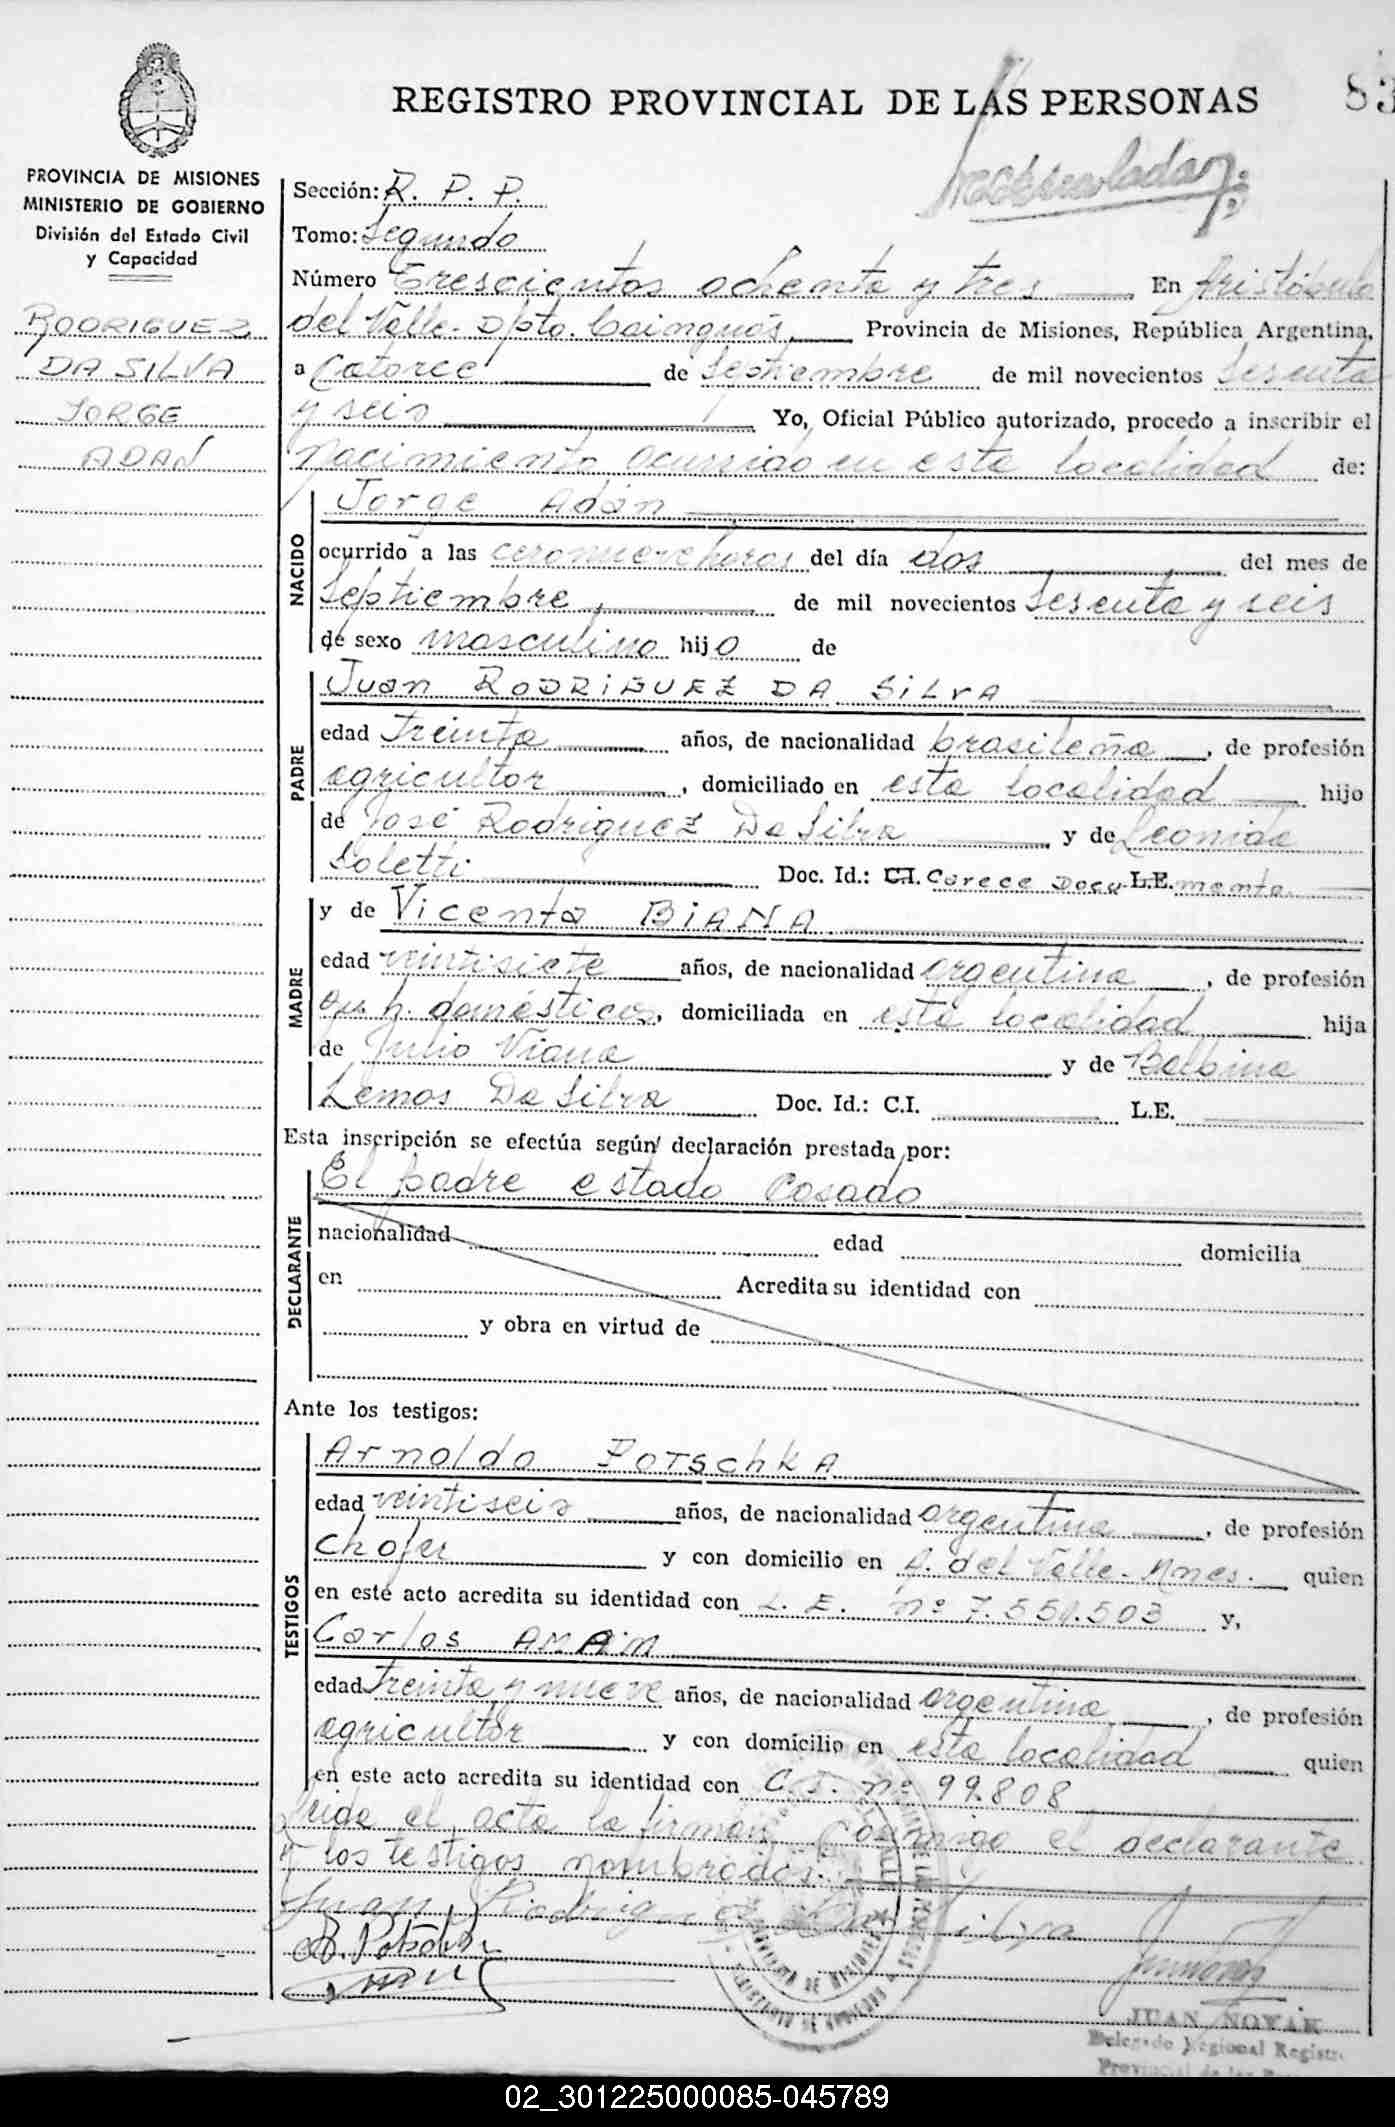 REGISTRO PROVINCIAL DE LAS PERSONAS
PROVINCIA DE MISIONES
MINISTERIO DE GOBIERNO
División del Estado Civil
y Capacidad
RODRIGUEZ
DA SILVA
JORGE
ADAN
Sección: R. P. P.
Tomo: Segundo
Número Trescientos ochenta y tres En Aristóbulo
del Valle - Dpto. Cainguás, Provincia de Misiones, República Argentina,
a Catorce de Septiembre de mil novecientos sesenta
y seis Yo, Oficial Público autorizado, procedo a inscribir el
nacimiento ocurrido en esta localidad de:
NACIDO
Jorge Adán
ocurrido a las cero nueve horas del día dos del mes de
Septiembre, de mil novecientos sesenta y seis
de sexo masculino hijo de
PADRE
Juan RODRIGUEZ DA SILVA
edad treinta años, de nacionalidad brasileña, de profesión
agricultor, domiciliado en esta localidad hijo
de José Rodriguez Da Silva y de Leonida
Soletti Doc. Id.: C.I. Carece Docu L.E. mento.
MADRE
y de Vicenta BIANA
edad veintisiete años, de nacionalidad argentina, de profesión
qu h. domésticos, domiciliada en esta localidad hija
de Julio Viana y de Balbina
Lemos Da Silva Doc. Id.: C.I. L.E.
Esta inscripción se efectúa según declaración prestada por:
DECLARANTE
El padre estado Casado
nacionalidad edad domicilia
en Acredita su identidad con
y obra en virtud de
Ante los testigos:
TESTIGOS
Arnoldo POTSCHKA
edad veintiseis años, de nacionalidad argentina, de profesión
Chofer y con domicilio en A. del Valle - Mnes. quien
en este acto acredita su identidad con L. E. nº 7.551.503 y,
Carlos AMAIM
edad treinta y nueve años, de nacionalidad argentina, de profesión
agricultor y con domicilio en esta localidad quien
en este acto acredita su identidad con C. I. nº 99.808
Leida el acta la firman conmigo el declarante
y los testigos nombrados.
Juan Rodriguez Da Silva
A. Potschka
JUAN NOVAK
Delegado Regional Registro
Provincial de las
02_301225000085-045789